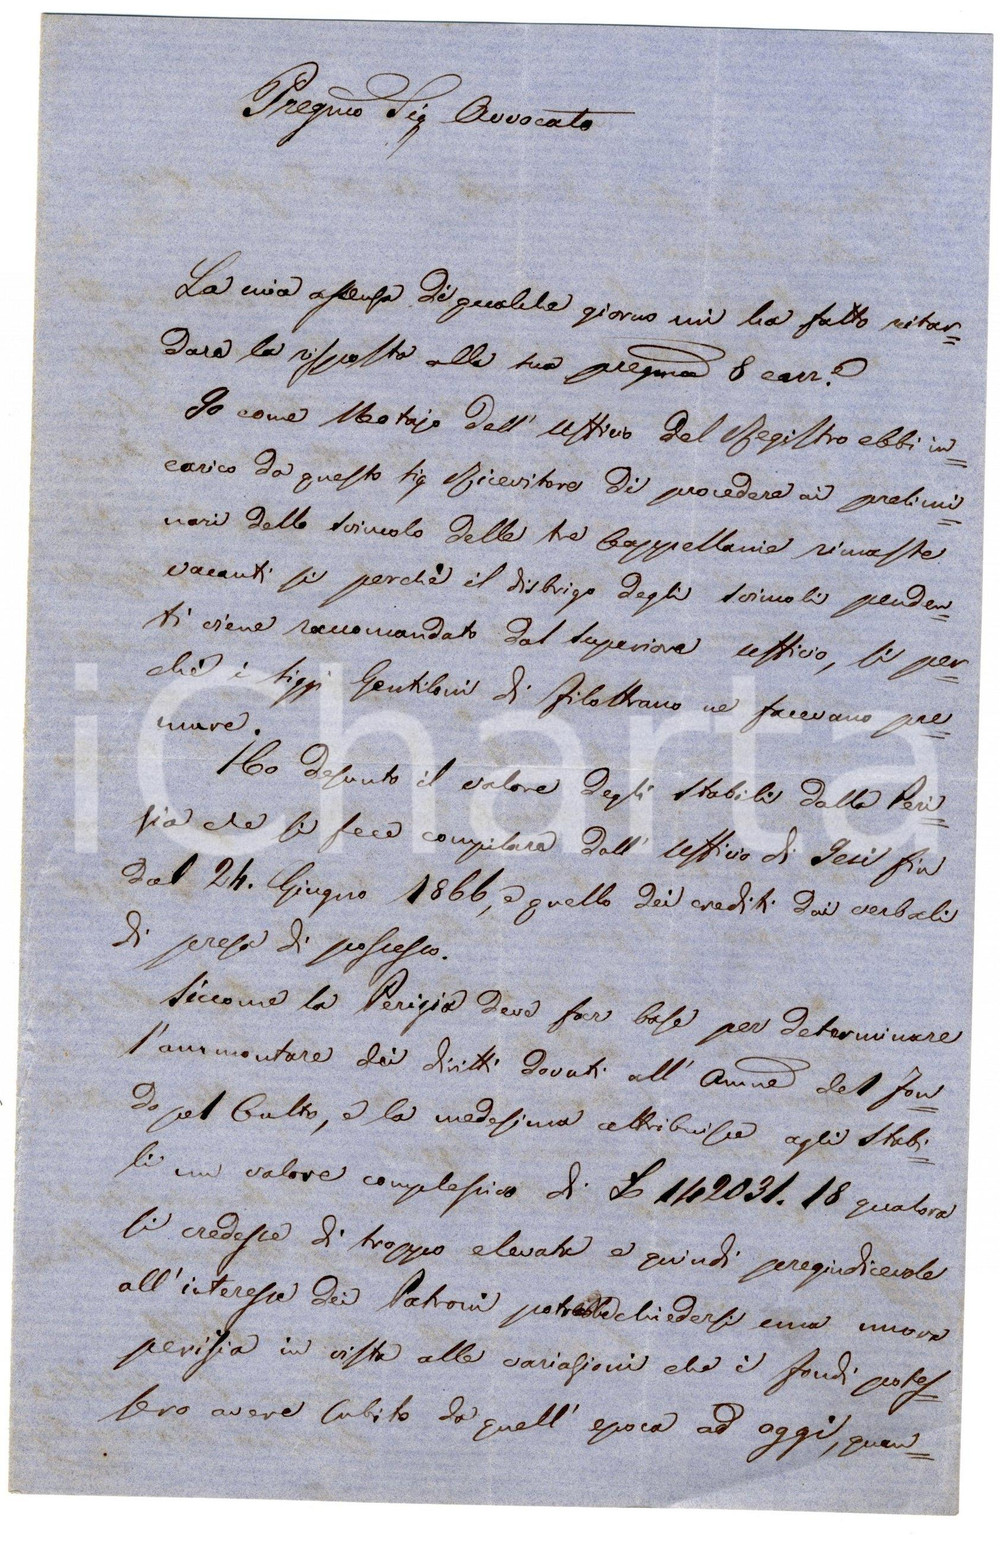 Pregmo Sig Avvocato
La mia assenza di qualche giorno mi ha fatto ritar=
dare la risposta alla sua pregma 8 corr.e
Io come Notajo dell' Uffizio del Registro ebbi in=
carico da questo sig Ricevitore di procedere ai prelimi=
nari dello svincolo delle tre Cappellanie rimaste
vacanti si perchè il disbrigo degli svincoli penden=
ti viene raccomandato dal superiore uffizio, si per=
chè i sigg. Gentiloni di Filottrano ne facevano pre=
mure.
Ho desunto il valore degli stabili dalla Peri=
zia che si fece compilare dall' Uffizio di Jesi fin
dal 24. Giugno 1866, e quello dei crediti dai verbali
di presa di possesso.
Siccome la Perizia deve far base per determinare
l'ammontare dei diritti dovuti all' Amme del Fon=
do pel Culto, e la medesima attribuisce agli stabi=
li un valore complessivo di L 142031. 18 qualora
si credesse di troppo elevata e quindi pregiudicevole
all'interesse dei Patroni potrebbe chiedersi una nuova
perizia in vista alle variazioni che i fondi potes=
sero avere subito da quell' epoca ad oggi, quan=
iCharta